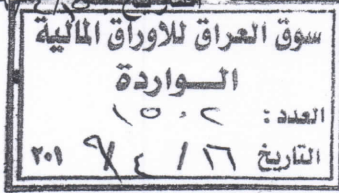 سوق العراق للاوراق المالية
الـــواردة
العدد : ١٥٠٢
التاريخ ١٦ / ٤ / ٢٠١٩